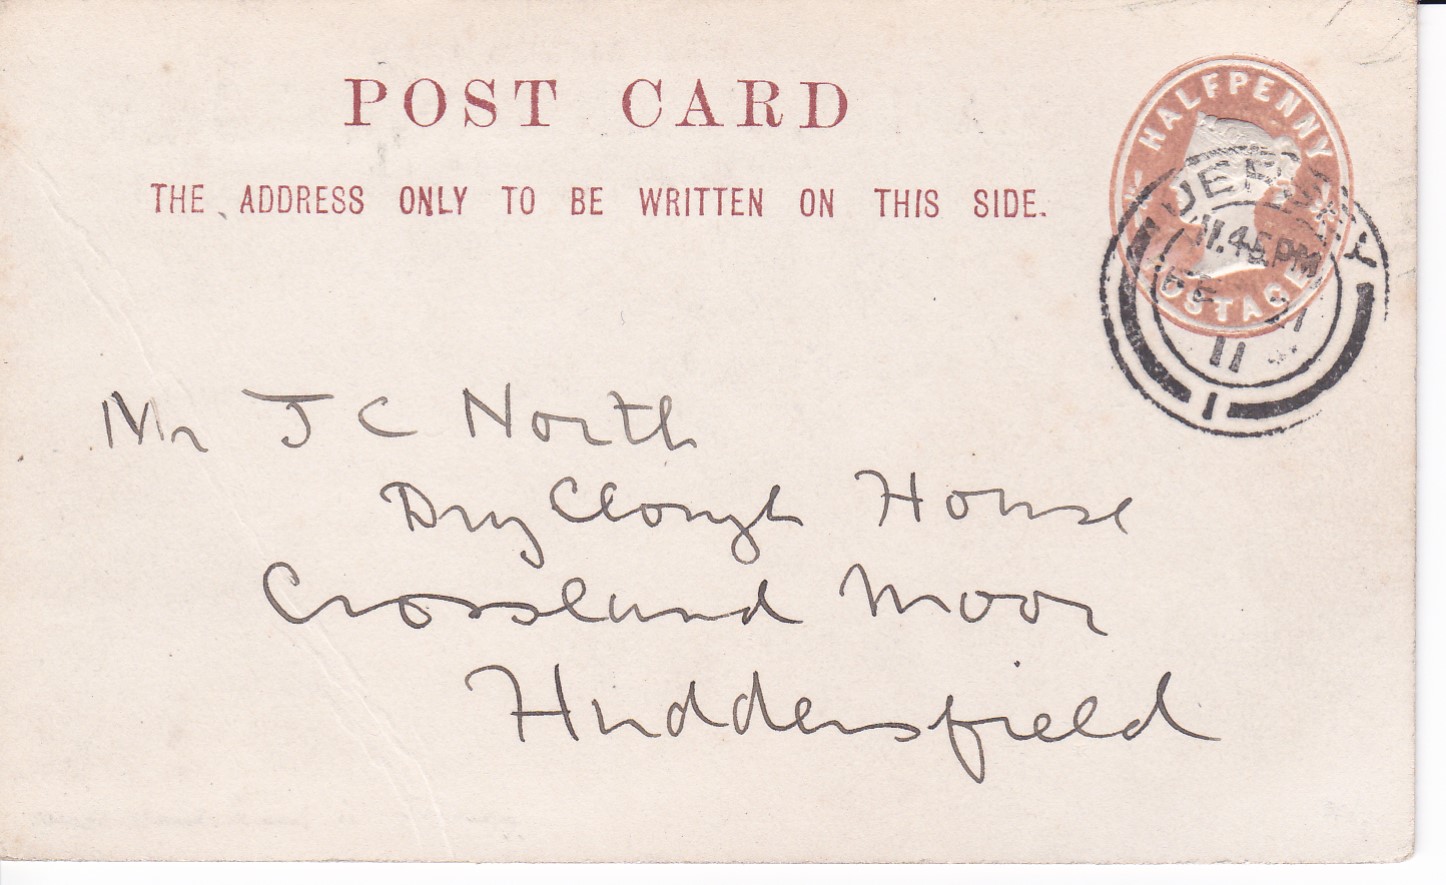 POST CARD
THE ADDRESS ONLY TO BE WRITTEN ON THIS SIDE.
HALFPENNY
POSTAGE
JERSEY
11.45PM
FE 21
11
1
Mr J C North
Dry Clough House
Crossland Moor
Huddersfield